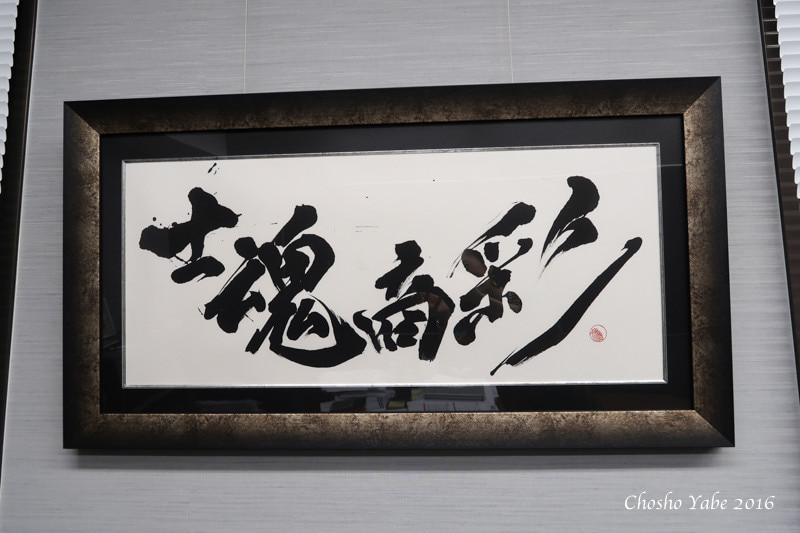 士魂商彩
Chosho Yabe 2016